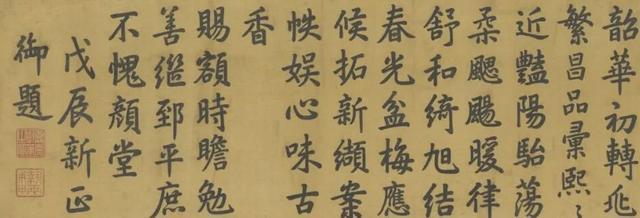 韶華初轉兆
繁昌品彙熙〻
近豔陽駘蕩
柔颸颺暖律
舒和綺旭結
春光盆梅應
候拓新纈案
帙娛心味古
香
賜額時瞻勉
善繼郅平庶
不愧顏堂
戊辰新正
御題